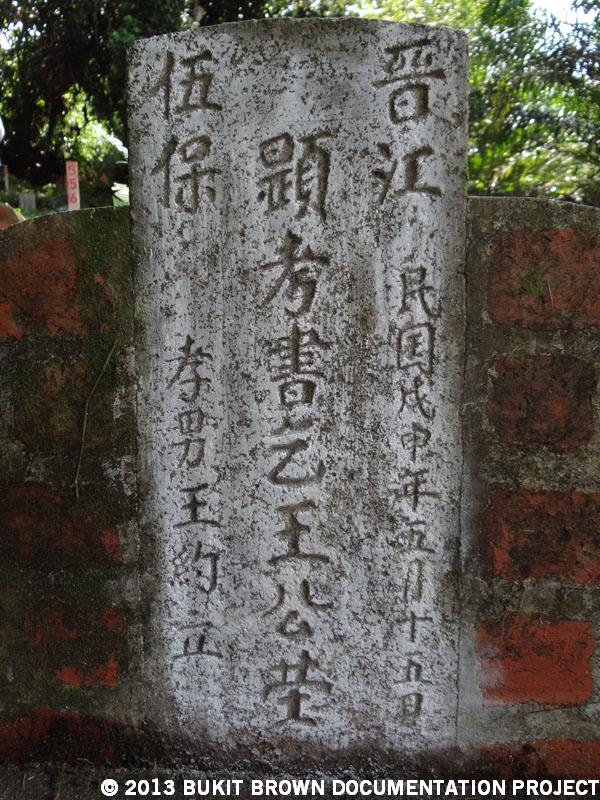 晋江
民国戊申年五月十五日
顕考書乞王公茔
伍保
孝男王約立
556
© 2013 BUKIT BROWN DOCUMENTATION PROJECT